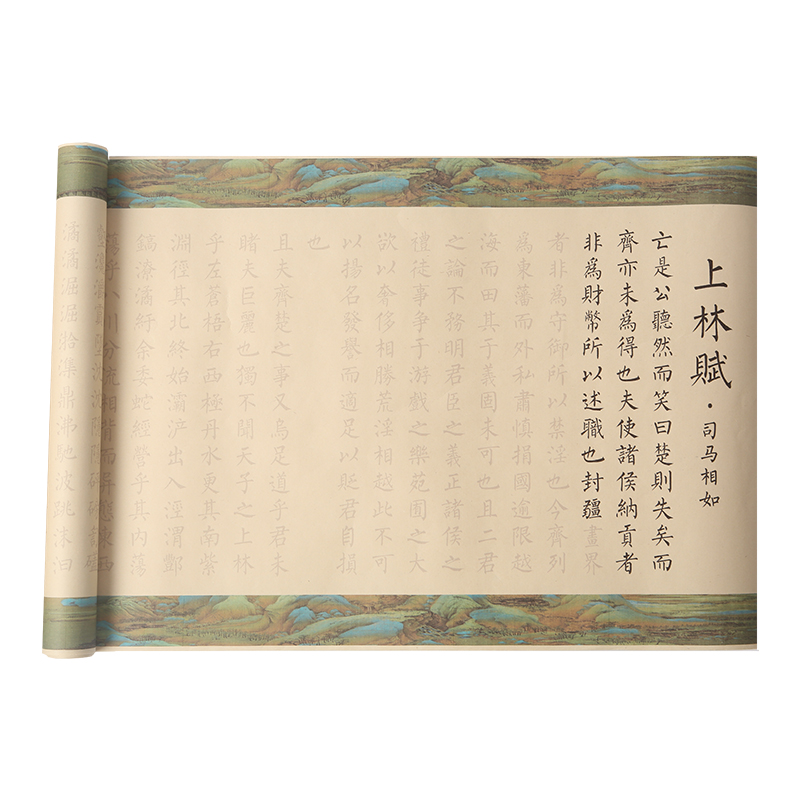 上林賦·司马相如
亡是公聽然而笑曰楚則失矣而
齊亦未爲得也夫使諸侯納貢者
非爲財幣所以述職也封疆畫界
者非爲守御所以禁淫也今齊列
爲東藩而外私肅慎捐國逾限越
海而田其于義固未可也且二君
之論不務明君臣之義正諸侯之
禮徒事争于游戲之樂苑囿之大
欲以奢侈相勝荒淫相越此不可
以揚名發譽而適足以貶君自損
也
且夫齊楚之事又烏足道乎君未
睹夫巨麗也獨不聞天子之上林
乎左蒼梧右西極丹水更其南紫
淵徑其北終始灞浐出入涇渭酆
鎬潦潏紆余委蛇經營乎其内蕩
蕩乎八川分流相背而异態東西
潏潏淈淈湁潗鼎沸馳波跳沫汩